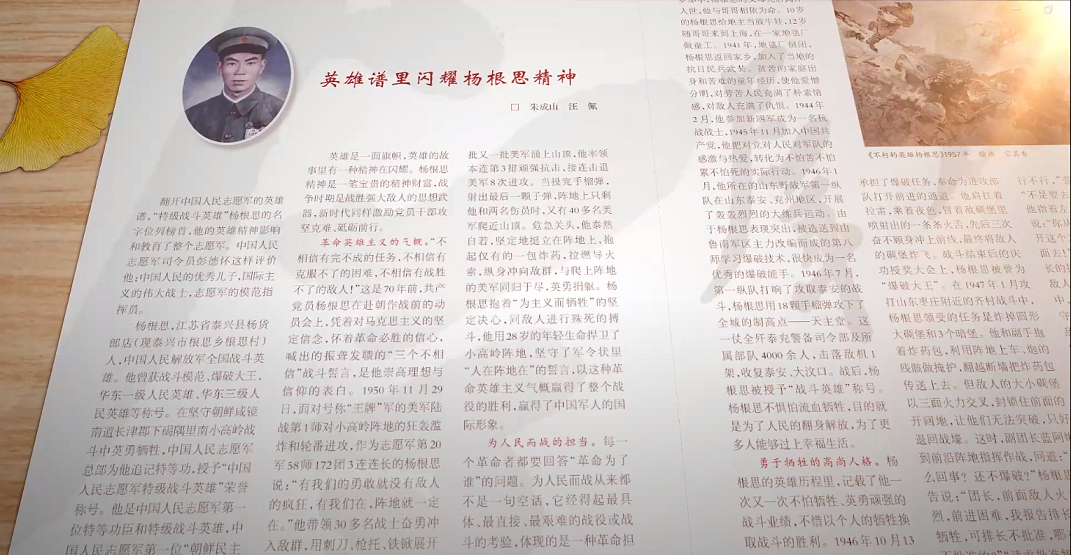 英雄谱里闪耀杨根思精神
□ 朱成山 汪 佩
翻开中国人民志愿军的英雄
谱,“特级战斗英雄”杨根思的名
字位列榜首,他的英雄精神影响
和教育了整个志愿军。中国人民
志愿军司令员彭德怀这样评价
他:中国人民的优秀儿子,国际主
义的伟大战士,志愿军的模范指
挥员。
杨根思,江苏省泰兴县杨货
郎店(现泰兴市根思乡根思村)
人,中国人民解放军全国战斗英
雄。他曾获战斗模范、爆破大王,
华东一级人民英雄、华东三级人
民英雄等称号。在坚守朝鲜咸镜
南道长津郡下碣隅里南小高岭战
斗中英勇牺牲,中国人民志愿军
总部为他追记特等功,授予“中国
人民志愿军特级战斗英雄”荣誉
称号。他是中国人民志愿军第一
位特等功臣和特级战斗英雄,中
国人民志愿军第一位“朝鲜民主
英雄是一面旗帜,英雄的故
事里有一种精神在闪耀。杨根思
精神是一笔宝贵的精神财富,战
争时期是战胜强大敌人的思想武
器,新时代同样激励党员干部攻
坚克难,砥砺前行。
革命英雄主义的气概。“不
相信有完不成的任务,不相信有
克服不了的困难,不相信有战胜
不了的敌人!”这是70年前,共产
党员杨根思在赴朝作战前的动
员会上,凭着对马克思主义的坚
定信念,怀着革命必胜的信心,
喊出的振聋发聩的“三个不相
信”战斗誓言,是他崇高理想与
信仰的表白。1950年11月29
日,面对号称“王牌”军的美军陆
战第1师对小高岭阵地的狂轰滥
炸和轮番进攻,作为志愿军第20
军58师172团3连连长的杨根思
说:“有我们的勇敢就没有敌人
的疯狂,有我们在,阵地就一定
在。”他带领30多名战士奋勇冲
入敌群,用刺刀、枪托、铁锨展开
批又一批美军涌上山顶,他率领
本连第3排顽强抗击,接连击退
美军8次进攻。当投完手榴弹,
射出最后一颗子弹,阵地上只剩
他和两名伤员时,又有40多名美
军爬近山顶。危急关头,他泰然
自若,坚定地挺立在阵地上,抱
起仅有的一包炸药,拉燃导火
索,纵身冲向敌群,与爬上阵地
的美军同归于尽,英勇捐躯。杨
根思抱着“为主义而牺牲”的坚
定决心,同敌人进行殊死的搏
斗,他用28岁的年轻生命捍卫了
小高岭阵地,坚守了军令状里
“人在阵地在”的誓言,以这种革
命英雄主义气概赢得了整个战
役的胜利,赢得了中国军人的国
际形象。
为人民而战的担当。每一
个革命者都要回答“革命为了
谁”的问题。为人民而战从来都
不是一句空话,它经得起最具
体、最直接、最艰难的战役或战
斗的考验,体现的是一种革命担
人世,他与哥哥相依为命。10岁
的杨根思给地主当放牛娃,12岁
随哥哥来到上海,在一家地毯厂
做童工。1941年,地毯厂倒闭,
杨根思返回家乡,加入了当地的
抗日民兵武装。贫苦的家庭出
身和苦难的童年经历,使他爱憎
分明,对劳苦人民充满了朴素情
感,对敌人充满了仇恨。1944年
2月,他参加新四军成为一名抗
战战士,1945年11月加入中国共
产党,他把对党对人民对军队的
感激与热爱,转化为不怕苦不怕
累不怕死的实际行动。1946年1
月,他所在的山东野战军第一纵
队在山东泰安、兖州地区,开展
了轰轰烈烈的大练兵运动。由
于杨根思表现突出,被选送到由
鲁南军区主力改编而成的第八
师学习爆破技术,很快成为一名
优秀的爆破能手。1946年7月,
第一纵队打响了攻取泰安的战
斗,杨根思用18颗手榴弹攻下了
全城的制高点——天主堂。这
一仗全歼泰克警备司令部及所
属部队4000余人,击落敌机1
架,收复泰安、大汶口。战后,杨
根思被授予“战斗英雄”称号。
杨根思不惧怕流血牺牲,目的就
是为了人民的翻身解放,为了更
多人能够过上幸福生活。
勇于牺牲的高尚人格。杨
根思的英雄历程里,记载了他一
次又一次不怕牺牲、英勇顽强的
战斗业绩,不惜以个人的牺牲换
取战斗的胜利。1946年10月13
《不朽的英雄杨根思》1957年 绘画
承担了爆破任务,革命为进攻部
队打开前进的通道。他肩扛着
拉雷,乘着夜色,冒着敌碉堡里
喷射出的一条条火舌,先后三次
奋不顾身冲上前线,最终将敌人
的碉堡炸飞。战斗结束后的庆
功授奖大会上,杨根思被誉为
“爆破大王”。在1947年1月攻
打山东枣庄附近的齐村战斗中,
杨根思领受的任务是炸掉圆形
大碉堡和3个暗堡。他和副手抱
着炸药包,利用阵地上车、炮的
残骸做掩护,翻越断墙把炸药包
传送上去。但敌人的大小碉堡
以三面火力交叉,封锁住前面的
开阔地,让他们无法突破,只好
退回战壕。这时,副团长蓝阿嫩
到前沿阵地指挥作战,问道:“
么回事?还不爆破?”杨根思
告说:“团长,前面敌人火
烈,前进困难,我报告排长
牺牲,可排长不批准,那